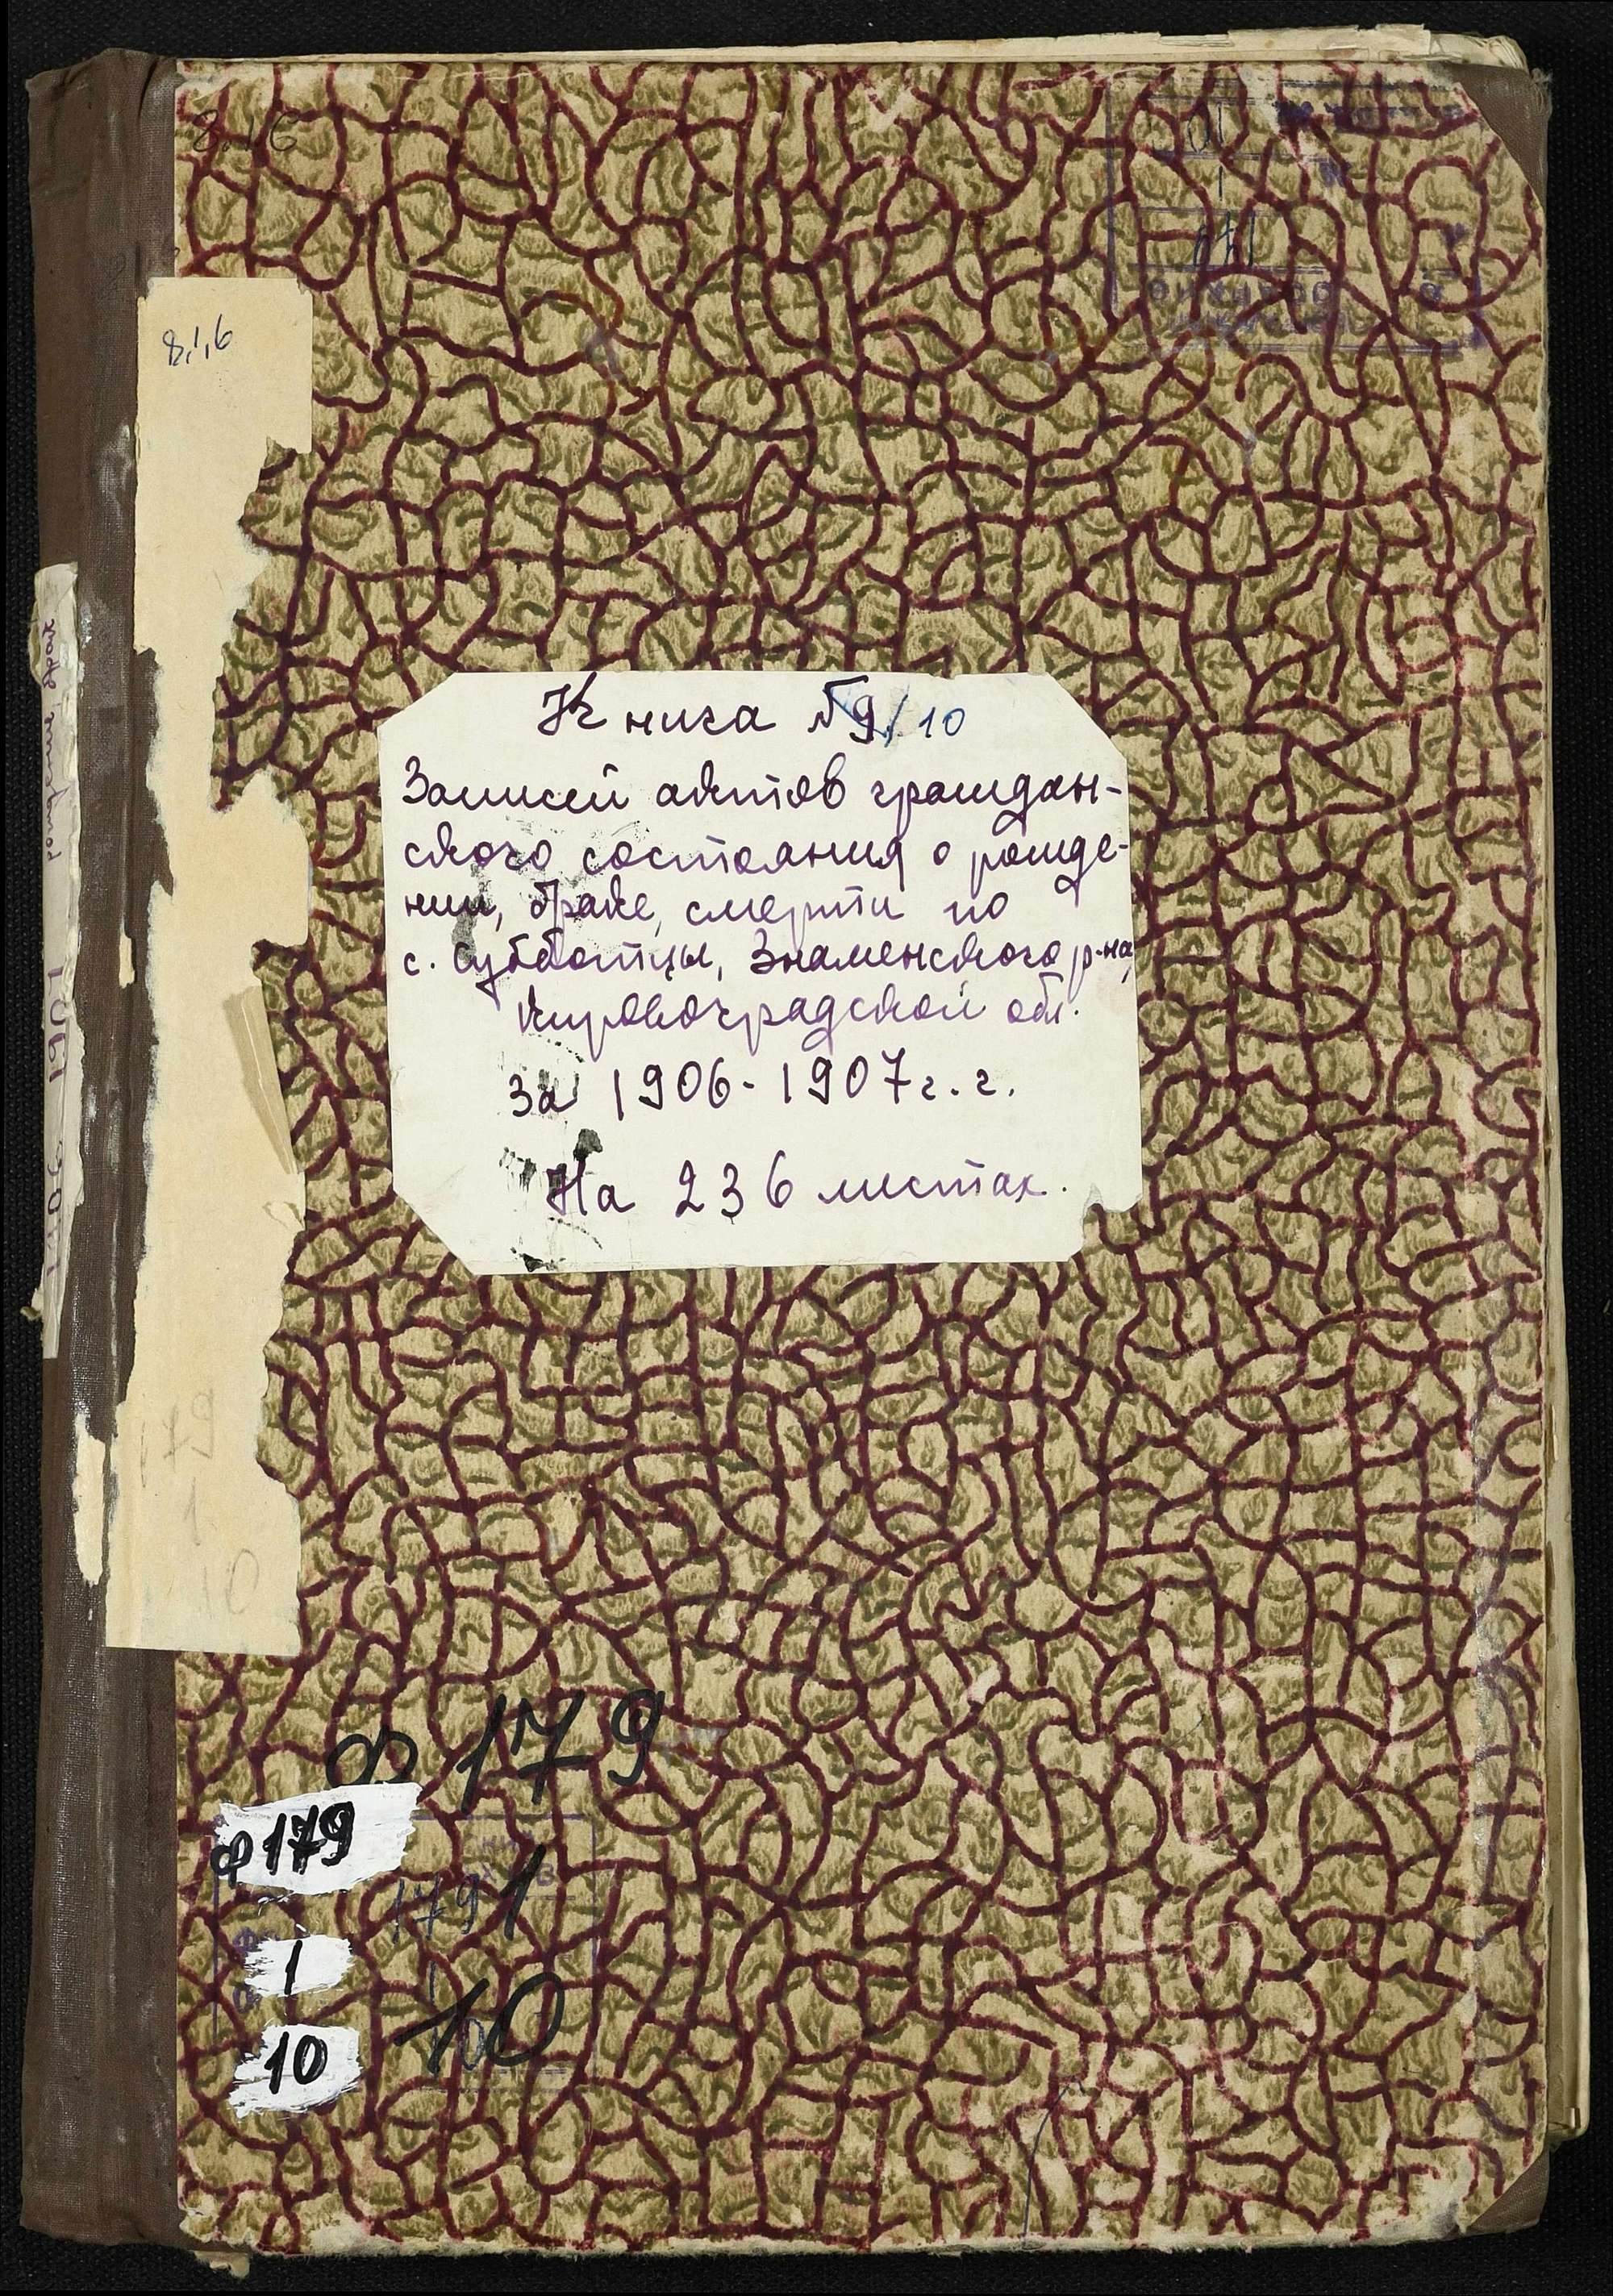 8.1.6
8,1,6
рождение, брак
1906 1907
Книга №9/10
Записей актов граждан-
ского состояния о рожде-
нии, браке, смерти по
с. Субботцы, Знаменского р-на,
Кировоградской обл.
за 1906-1907г.г.
На 236 листах.
179
1
10
ф 179
ф179
179 1
1
10
10